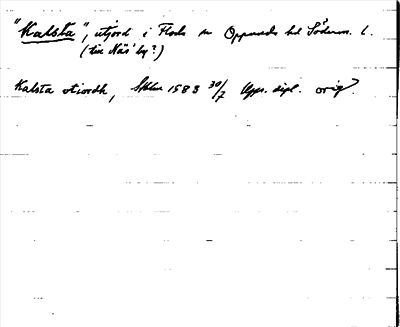 "Kalsta", utjord i Floda sn Oppunda hd Söderm. l.
(till Näs by?)
Kalsta otiordh, Sthlm 1583 30/7 Upps. dipl. orig.